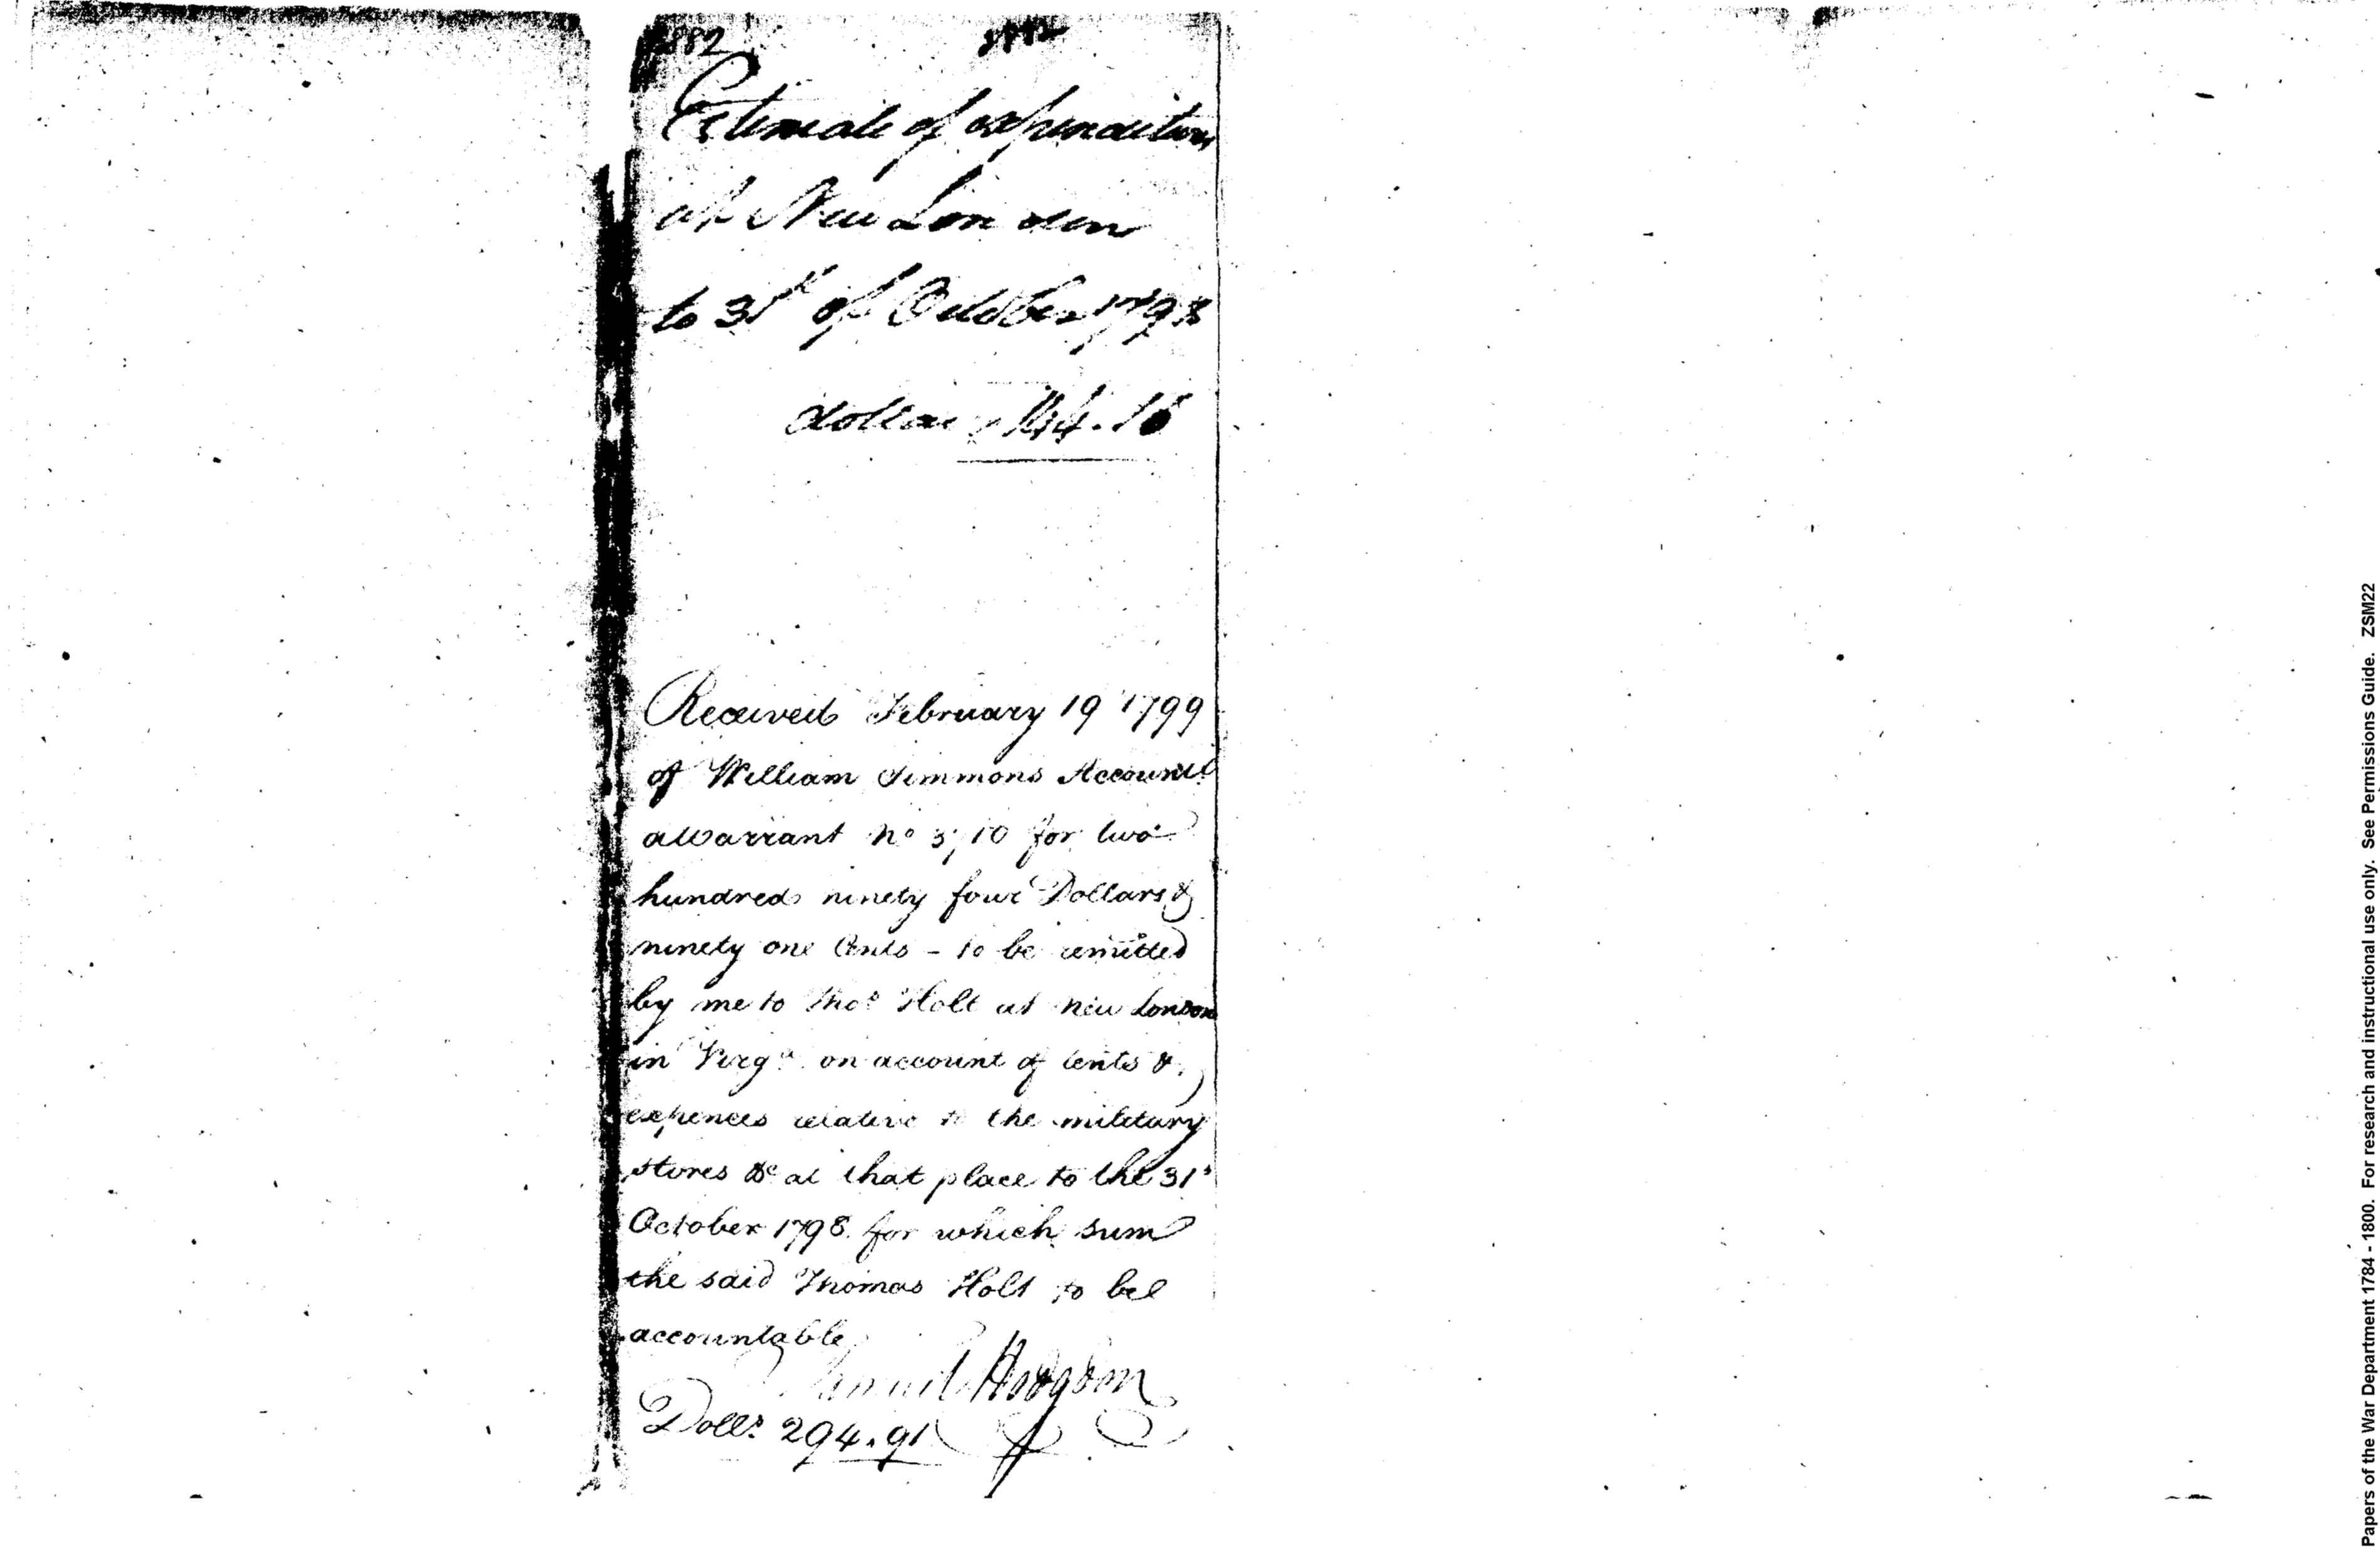 882
Estimate of expenditures
at New London
to 31st of October 1798
dollars 144.16
Received February 19 1799
of William Simmons Accountt
a Warrant no for two
hundred ninety four Dollars &
ninety one Cents - to be remitted
by me to Thos Holt at New London
in Virga. on account of rents &
expences relative to the military
stores &c at that place to the 31s
October 1798. for which sum
the said Thomas Holt to be
accountable
Samuel Hodgdon
Dolls 294.91
Papers of the War Department 1784 - 1800. For research and instructional use only. See Permissions Guide. ZSM22